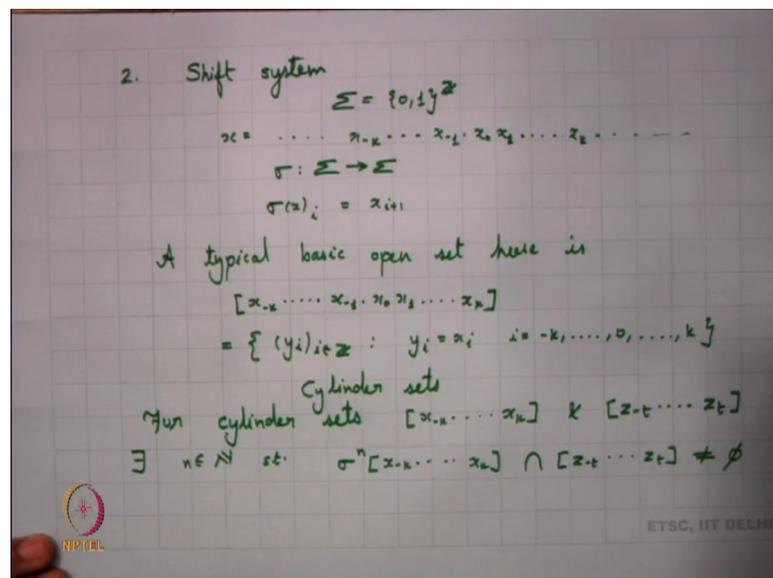 2. Shift system
Σ = {0,1}^ℤ
x = .... x₋ₖ ... x₋₁ . x₀ x₁ ..... xₖ ........
σ : Σ → Σ
σ(x)ᵢ = xᵢ₊₁
A typical basic open set here is
[x₋ₖ ..... x₋₁ . x₀ x₁ .... xₖ]
= { (yᵢ)ᵢ∈ℤ : yᵢ = xᵢ i = -k, ...., 0, ...., k }
Cylinder sets
For cylinder sets [x₋ₖ ..... xₖ] & [z₋ₜ .... zₜ]
∃ n ∈ ℕ st. σⁿ[x₋ₖ .... xₖ] ∩ [z₋ₜ ... zₜ] ≠ ∅
NPTEL
ETSC, IIT DELHI